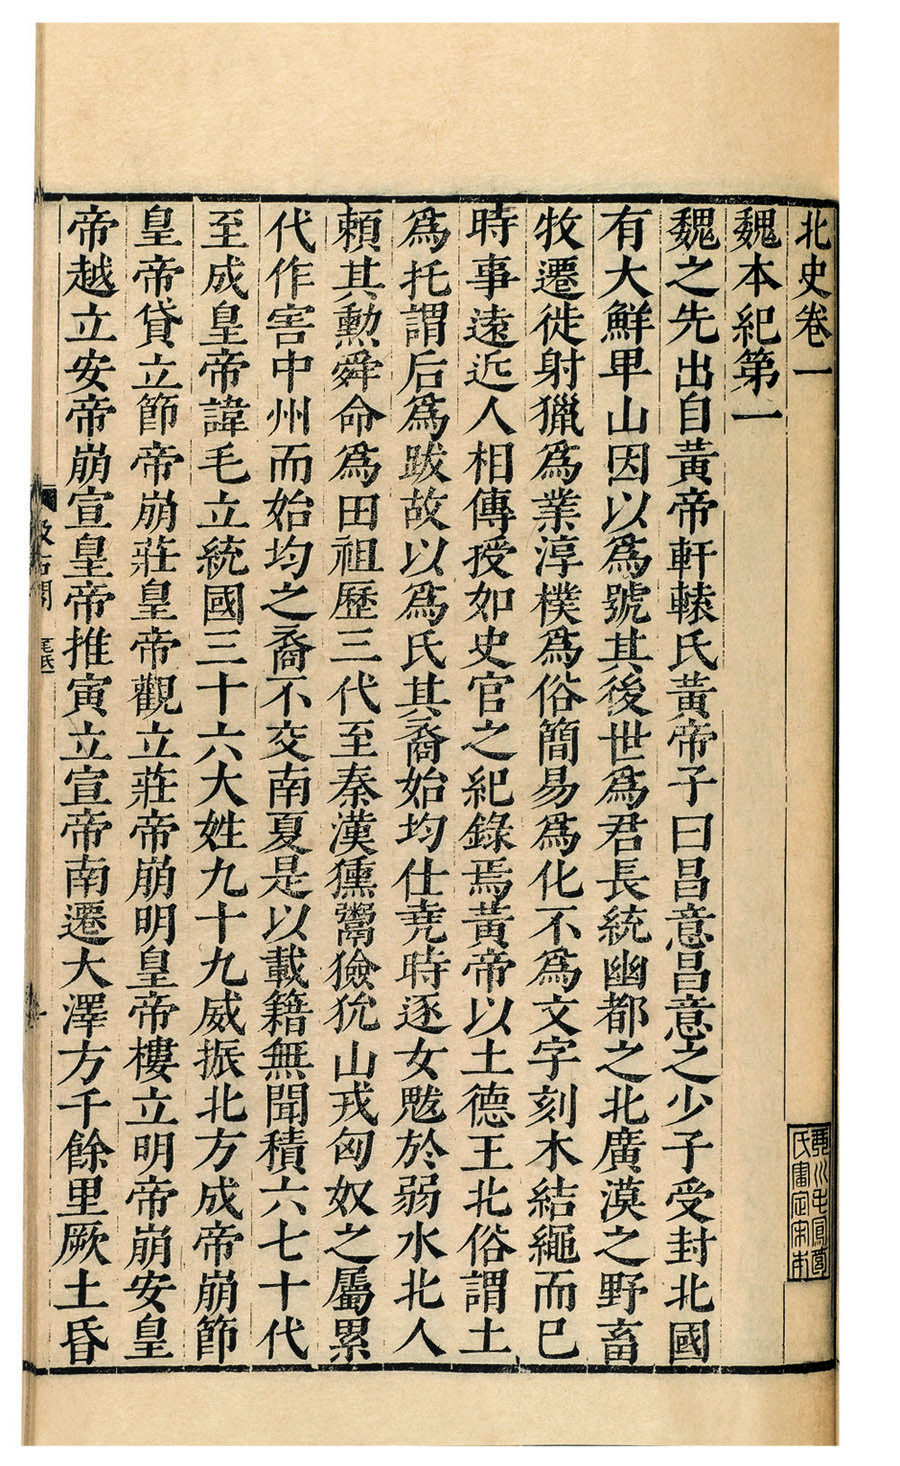 北史卷一
魏本紀第一
魏之先出自黃帝軒轅氏黃帝子曰昌意昌意之少子受封北國
有大鮮卑山因以爲號其後世爲君長統幽都之北廣漠之野畜
牧遷徙射獵爲業淳樸爲俗簡易爲化不爲文字刻木結繩而已
時事遠近人相傳授如史官之紀錄焉黃帝以土德王北俗謂土
爲托謂后爲跋故以爲氏其裔始均仕堯時逐女魃於弱水北人
賴其勲舜命爲田祖歷三代至秦漢獯鬻獫狁山戎匈奴之屬累
代作害中州而始均之裔不交南夏是以載籍無聞積六七十代
至成皇帝諱毛立統國三十六大姓九十九威振北方成帝崩節
皇帝貸立節帝崩莊皇帝觀立莊帝崩明皇帝樓立明帝崩安皇
帝越立安帝崩宣皇帝推寅立宣帝南遷大澤方千餘里厥土昏